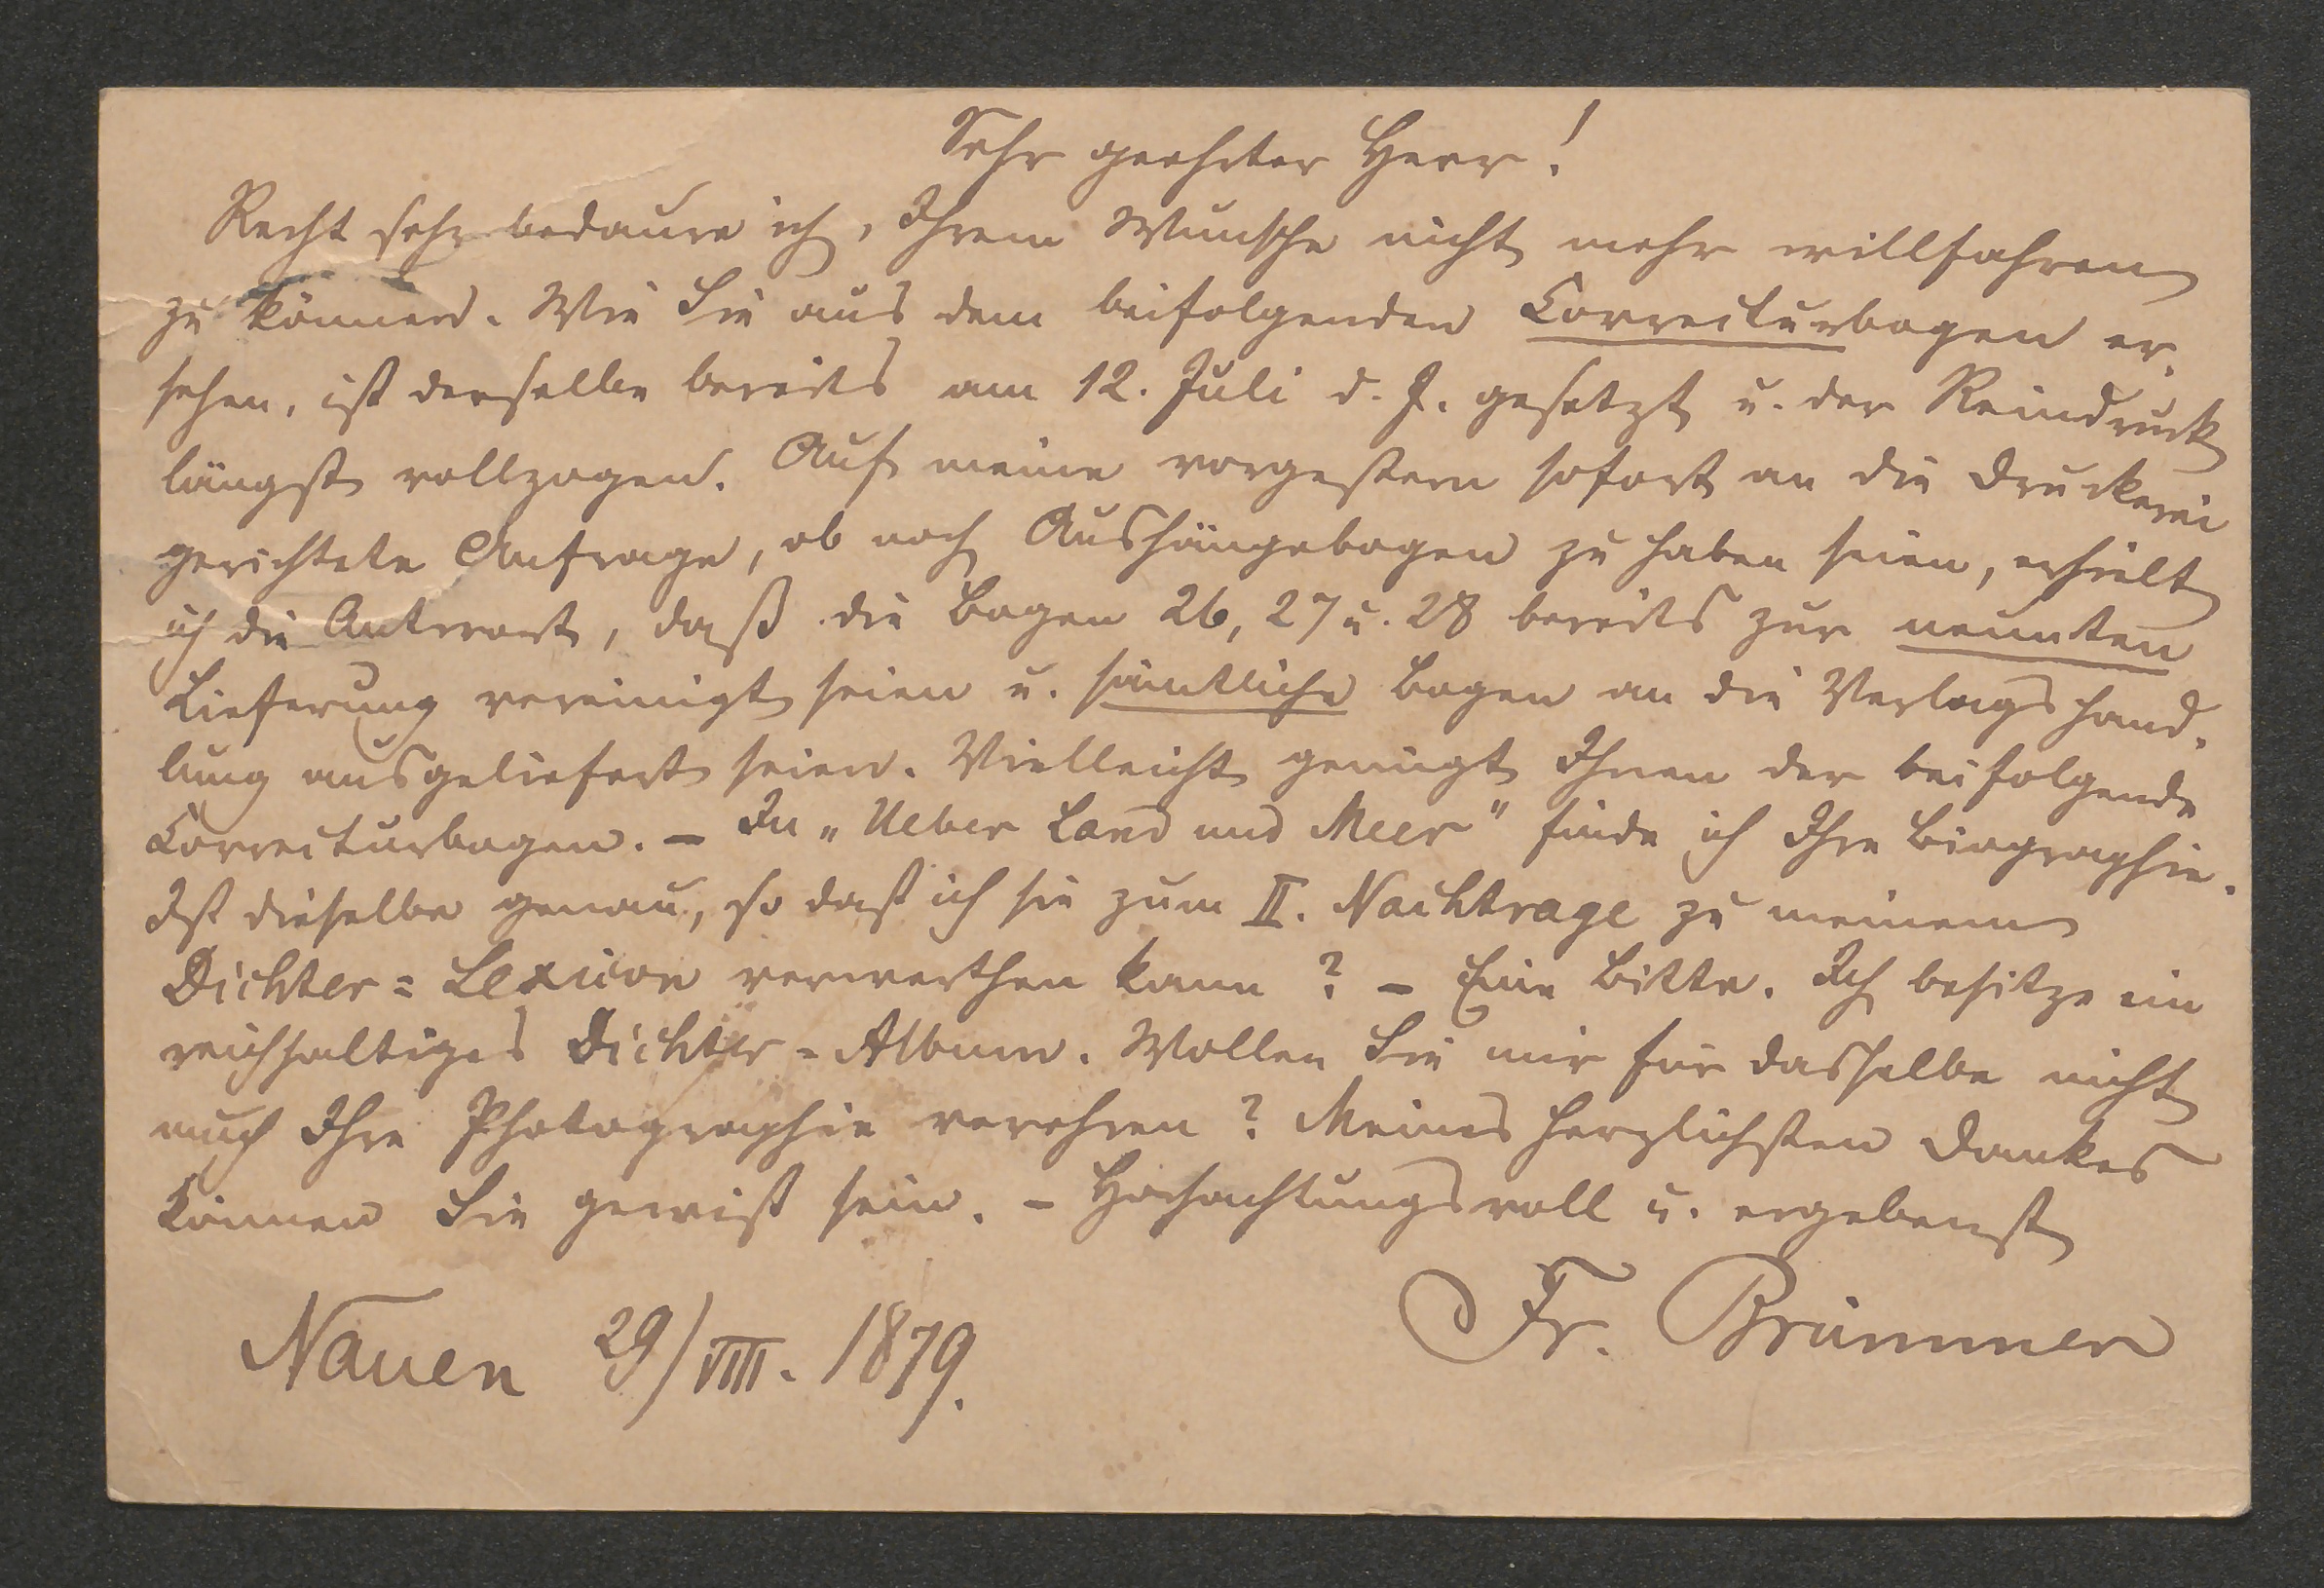 Sehr geehrter Herr!
Recht sehr bedaure ich, Ihrem Wunsche nicht mehr willfahren
zu können. Wie Sie aus dem beifolgenden Correcturbogen er-
sehen, ist derselbe bereits am 12. Juli d. J. gesetzt u. der Reindruck
längst vollzogen. Auf meine vorgestern sofort an die Druckerei
gerichtete Anfrage, ob noch Aushängebogen zu haben seien, erhielt
ich die Antwort, daß die Bogen 26, 27 u. 28 bereits zur neunten
Lieferung vereinigt seien u. sämtliche Bogen an die Verlagshand-
lung ausgeliefert seien. Vielleicht genügt Ihnen der beifolgende
Correcturbogen. – In „Ueber Land und Meer" finde ich Ihre Biographie.
Ist dieselbe genau, so daß ich sie zum II. Nachtrage zu meinem
Dichter=Lexicon verwerthen kann? – Eine Bitte. Ich besitze ein
reichhaltiges Dichter=Album. Wollen Sie mir für dasselbe nicht
auch Ihre Photographie verehren? Meines herzlichsten Dankes
können Sie gewiß sein. – Hochachtungsvoll u. ergebenst
Fr. Brümmer
Nauen 29/VIII. 1879.